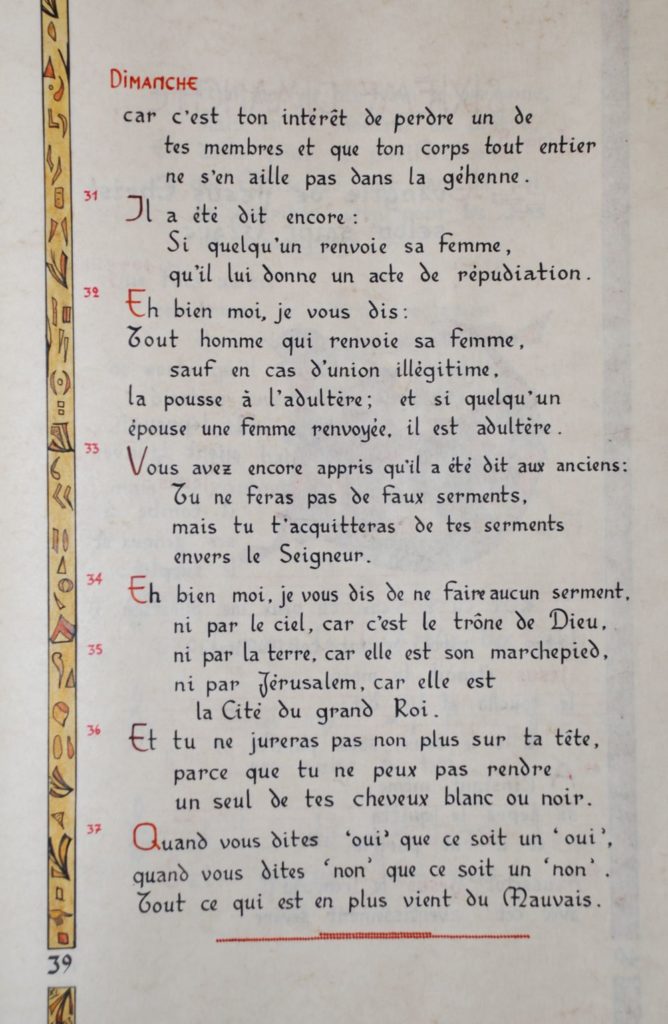 Dimanche
car c'est ton intérêt de perdre un de
tes membres et que ton corps tout entier
ne s'en aille pas dans la géhenne.
31
Il a été dit encore :
Si quelqu'un renvoie sa femme,
qu'il lui donne un acte de répudiation.
32
Eh bien moi, je vous dis :
Tout homme qui renvoie sa femme,
sauf en cas d'union illégitime,
la pousse à l'adultère ; et si quelqu'un
épouse une femme renvoyée, il est adultère.
33
Vous avez encore appris qu'il a été dit aux anciens :
Tu ne feras pas de faux serments,
mais tu t'acquitteras de tes serments
envers le Seigneur.
34
Eh bien moi, je vous dis de ne faire aucun serment,
ni par le ciel, car c'est le trône de Dieu,
35
ni par la terre, car elle est son marchepied,
ni par Jérusalem, car elle est
la Cité du grand Roi.
36
Et tu ne jureras pas non plus sur ta tête,
parce que tu ne peux pas rendre
un seul de tes cheveux blanc ou noir.
37
Quand vous dites 'oui' que ce soit un 'oui',
quand vous dites 'non' que ce soit un 'non'.
Tout ce qui est en plus vient du Mauvais.
39